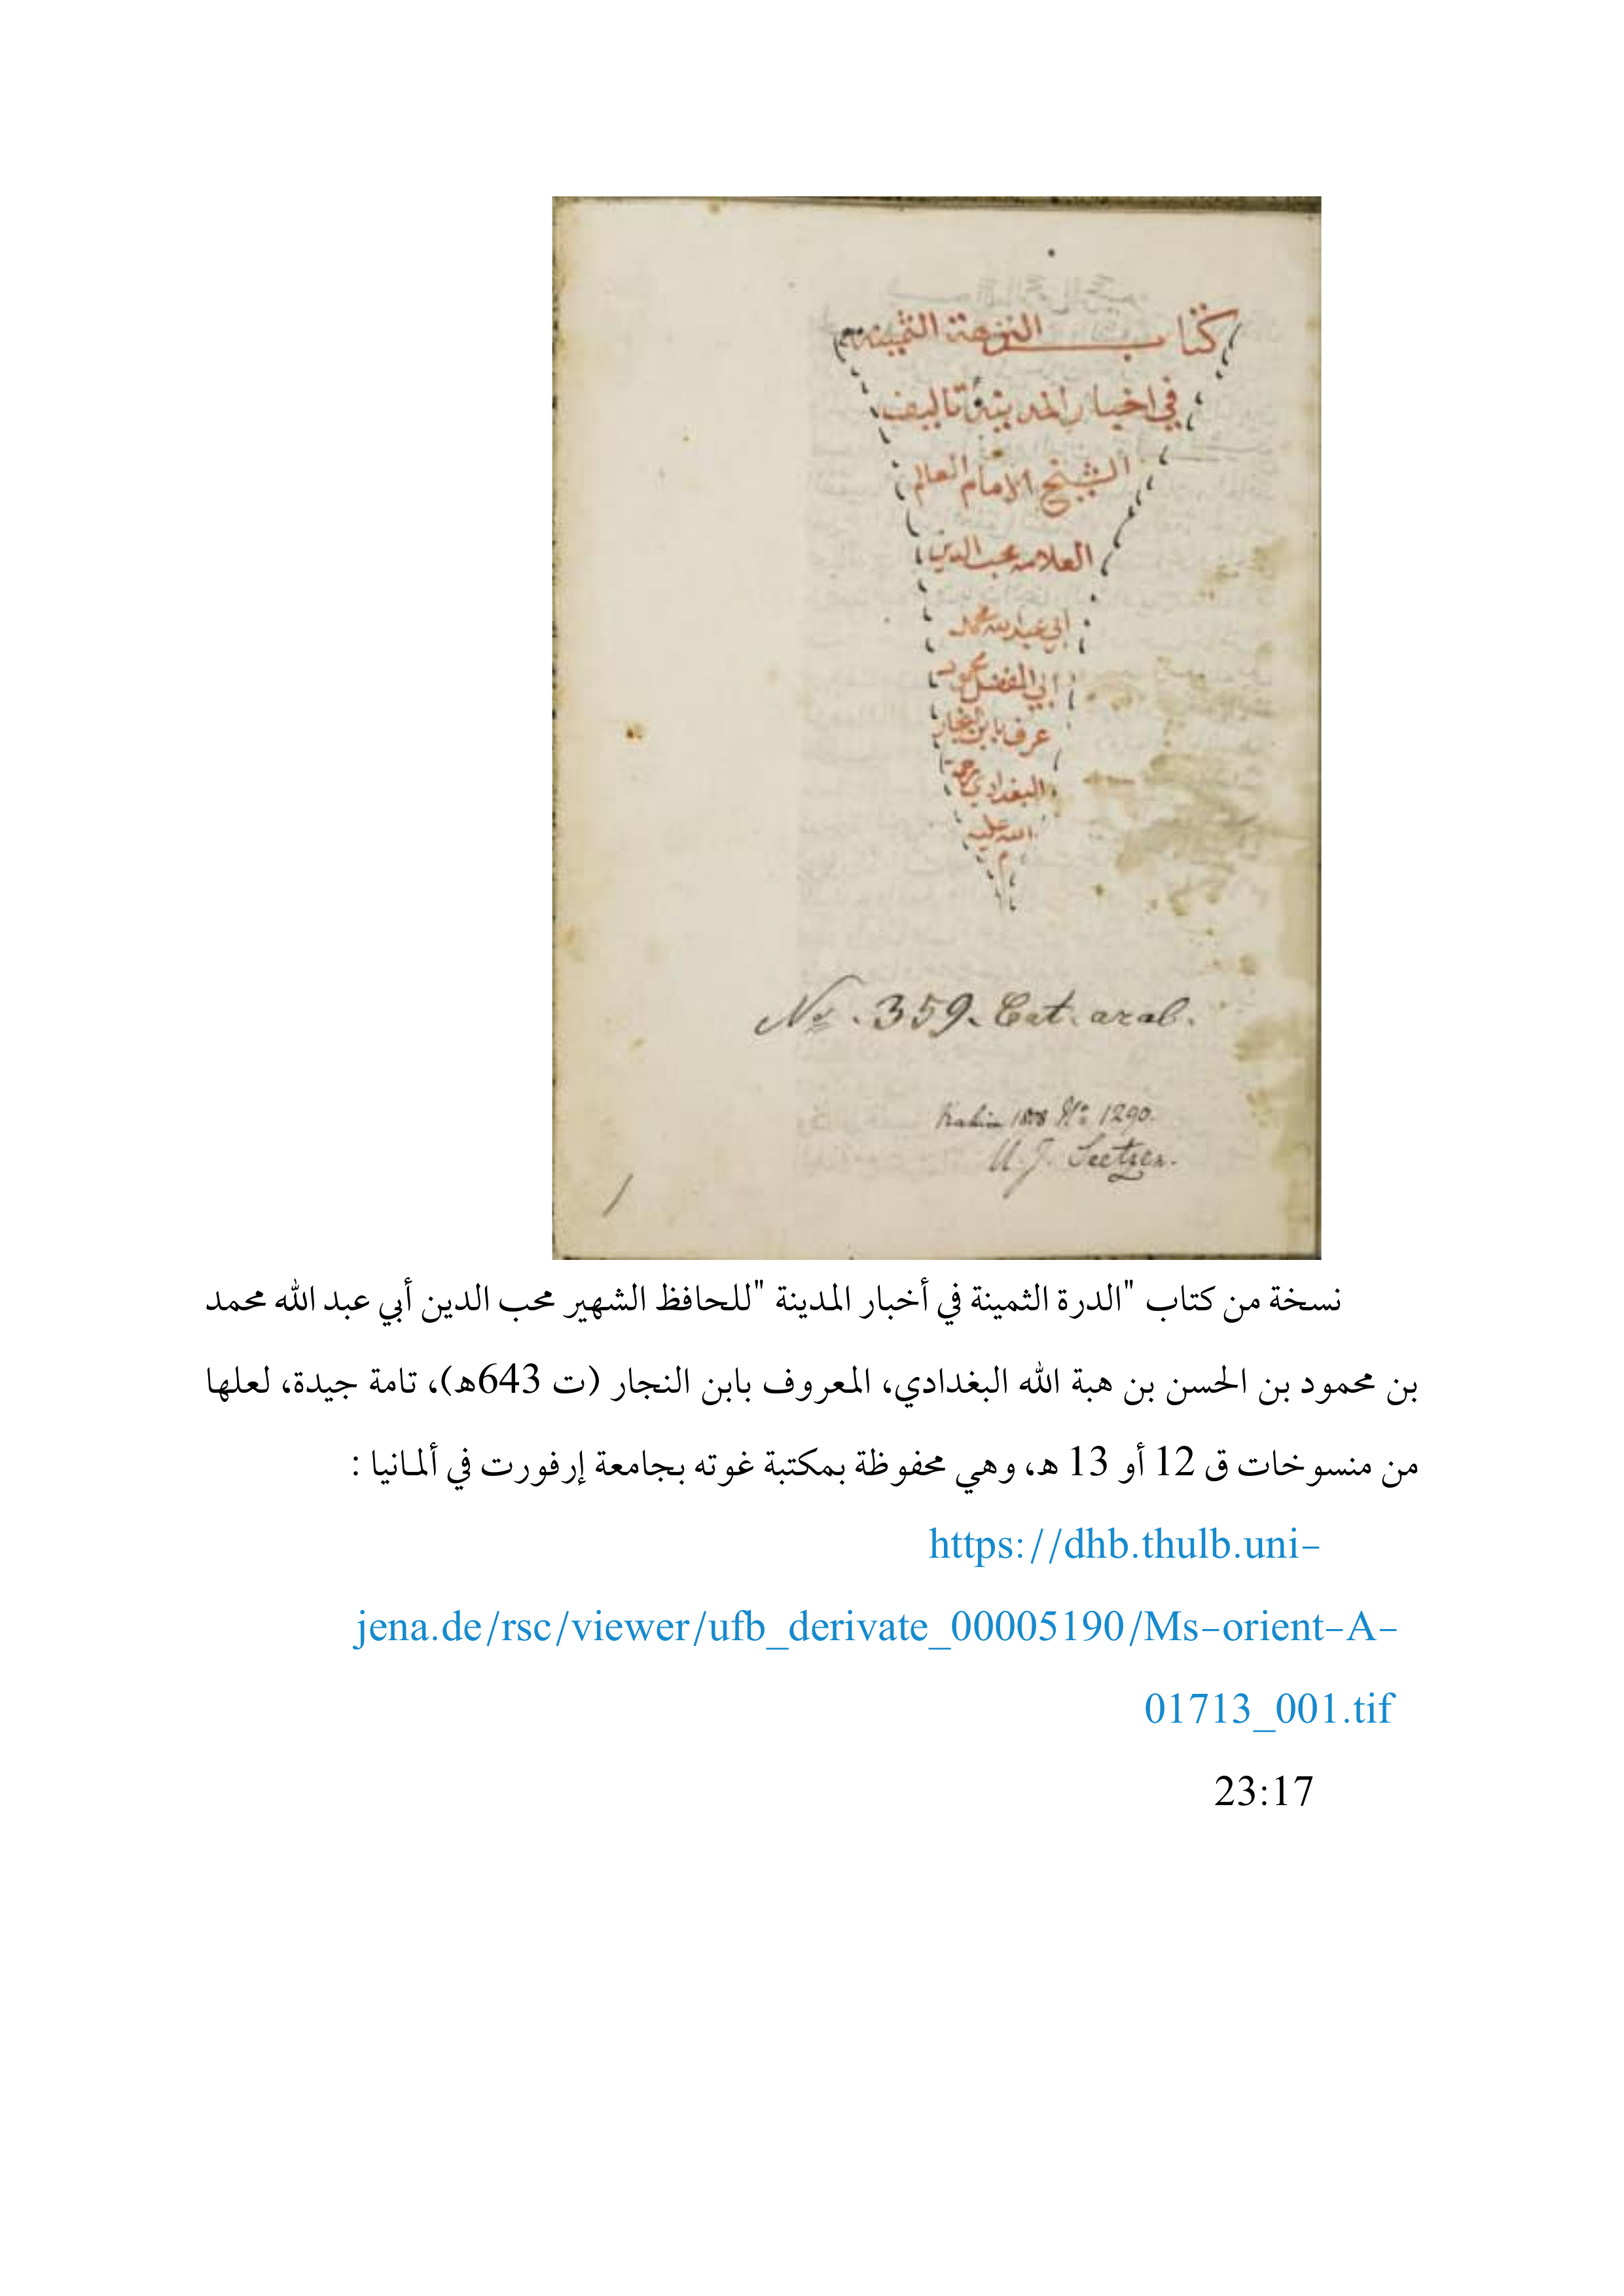 كتاب النزهة الثمينة
في اخبار المدينة تاليف
الشيخ الامام العالم
العلامه محب الدين
ابي عبد الله محمد
ابي المفضل محمود
عرف بابن النجار
البغدادي رحمة
الله عليه
م
No. 359. Cat. arab.
Kahira 1808 No 1290.
U. J. Seetzen.
1
نسخة من كتاب "الدرة الثمينة في أخبار المدينة "للحافظ الشهير محب الدين أبي عبد الله محمد
بن محمود بن الحسن بن هبة الله البغدادي، المعروف بابن النجار (ت 643ه)، تامة جيدة، لعلها
من منسوخات ق 12 أو 13 ه، وهي محفوظة بمكتبة غوته بجامعة إرفورت في ألمانيا :
https://dhb.thulb.uni-
jena.de/rsc/viewer/ufb_derivate_00005190/Ms-orient-A-
01713_001.tif
23:17